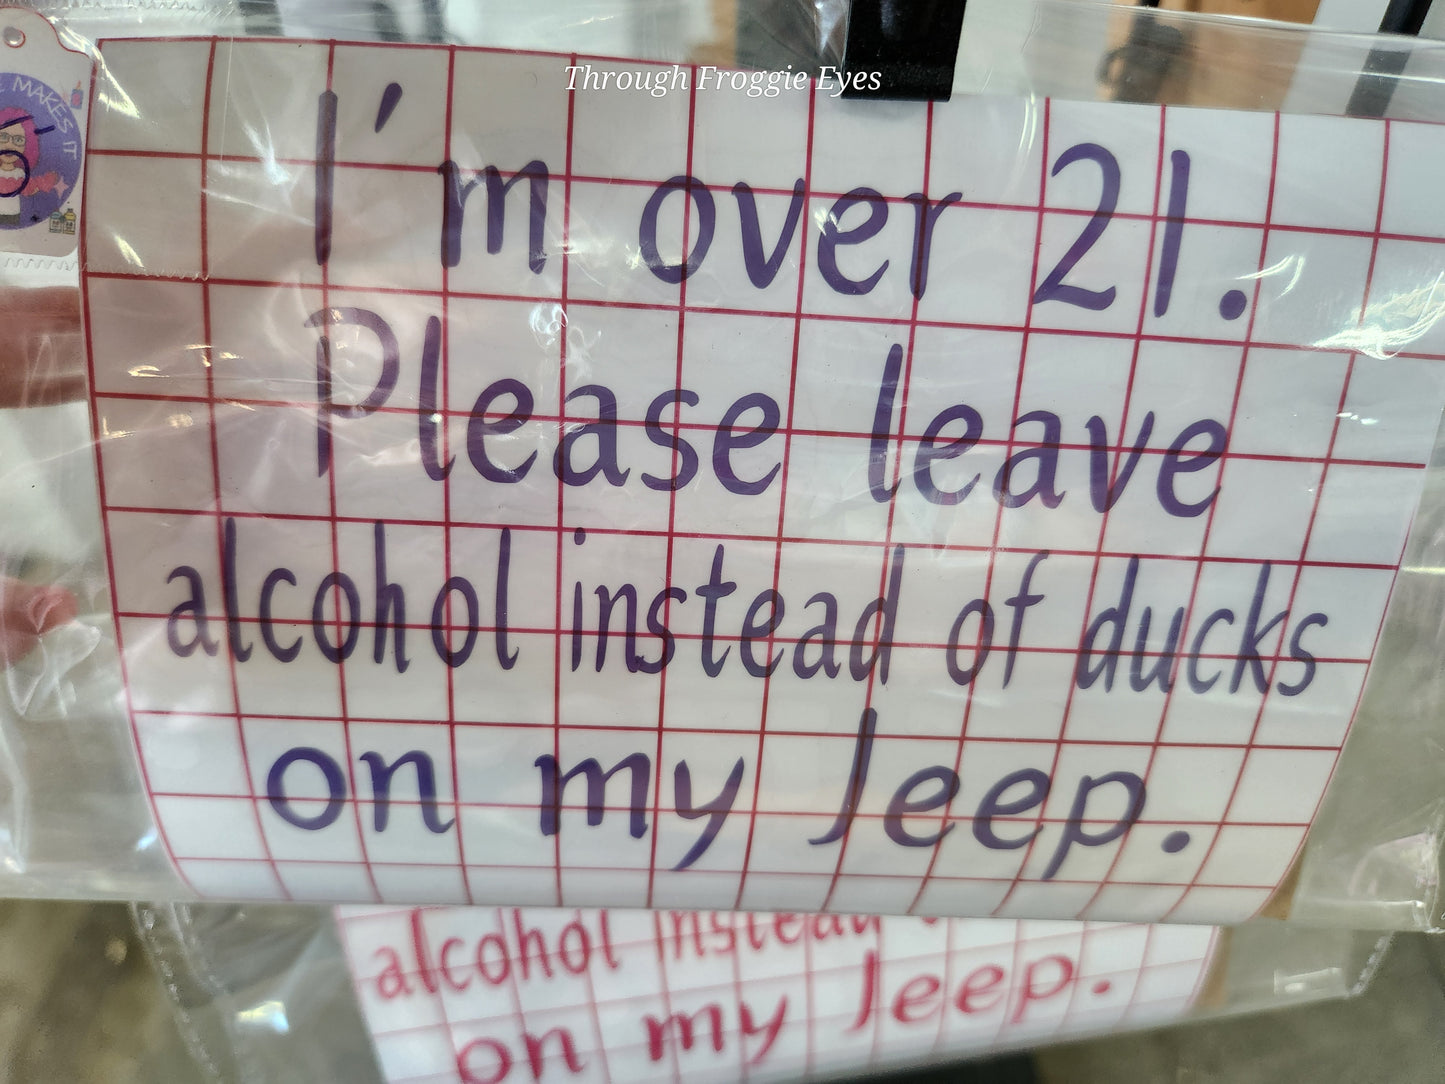 Through Froggie Eyes
MAKES IT
I'm over 21.
Please leave
alcohol instead of ducks
on my Jeep.
alcohol instead
on my Jeep.